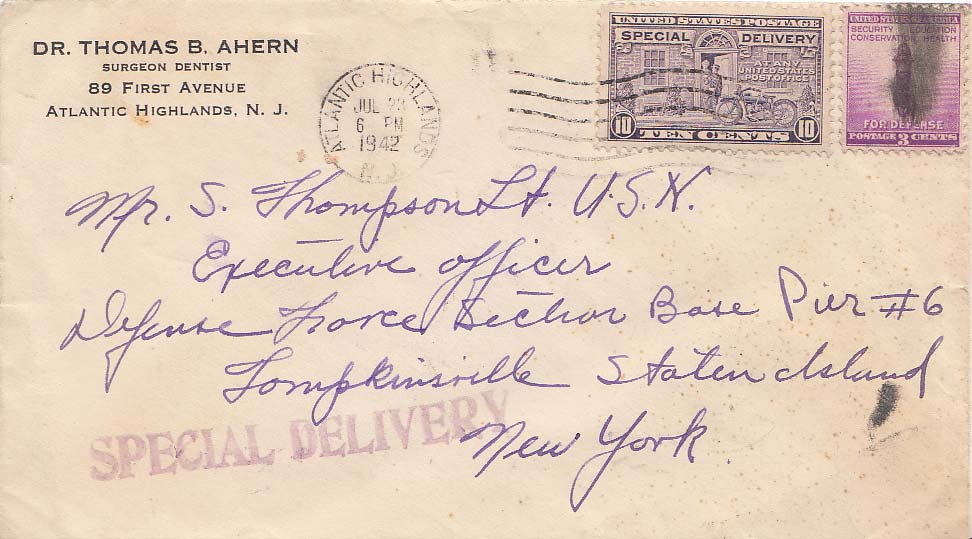 DR. THOMAS B. AHERN
SURGEON DENTIST
89 FIRST AVENUE
ATLANTIC HIGHLANDS, N. J.
ATLANTIC HIGHLANDS
JUL 23
6 PM
1942
N. J.
UNITED STATES POSTAGE
SPECIAL DELIVERY
AT ANY
UNITED STATES
POST OFFICE
10 TEN CENTS 10
UNITED STATES OF AMERICA
SECURITY EDUCATION
CONSERVATION HEALTH
FOR DEFENSE
POSTAGE 3 CENTS
Mr. S. Thompson Lt. U.S.N.
Executive Officer
Defense Force Section Base Pier #6
Tompkinsville Staten Island
New York
SPECIAL DELIVERY